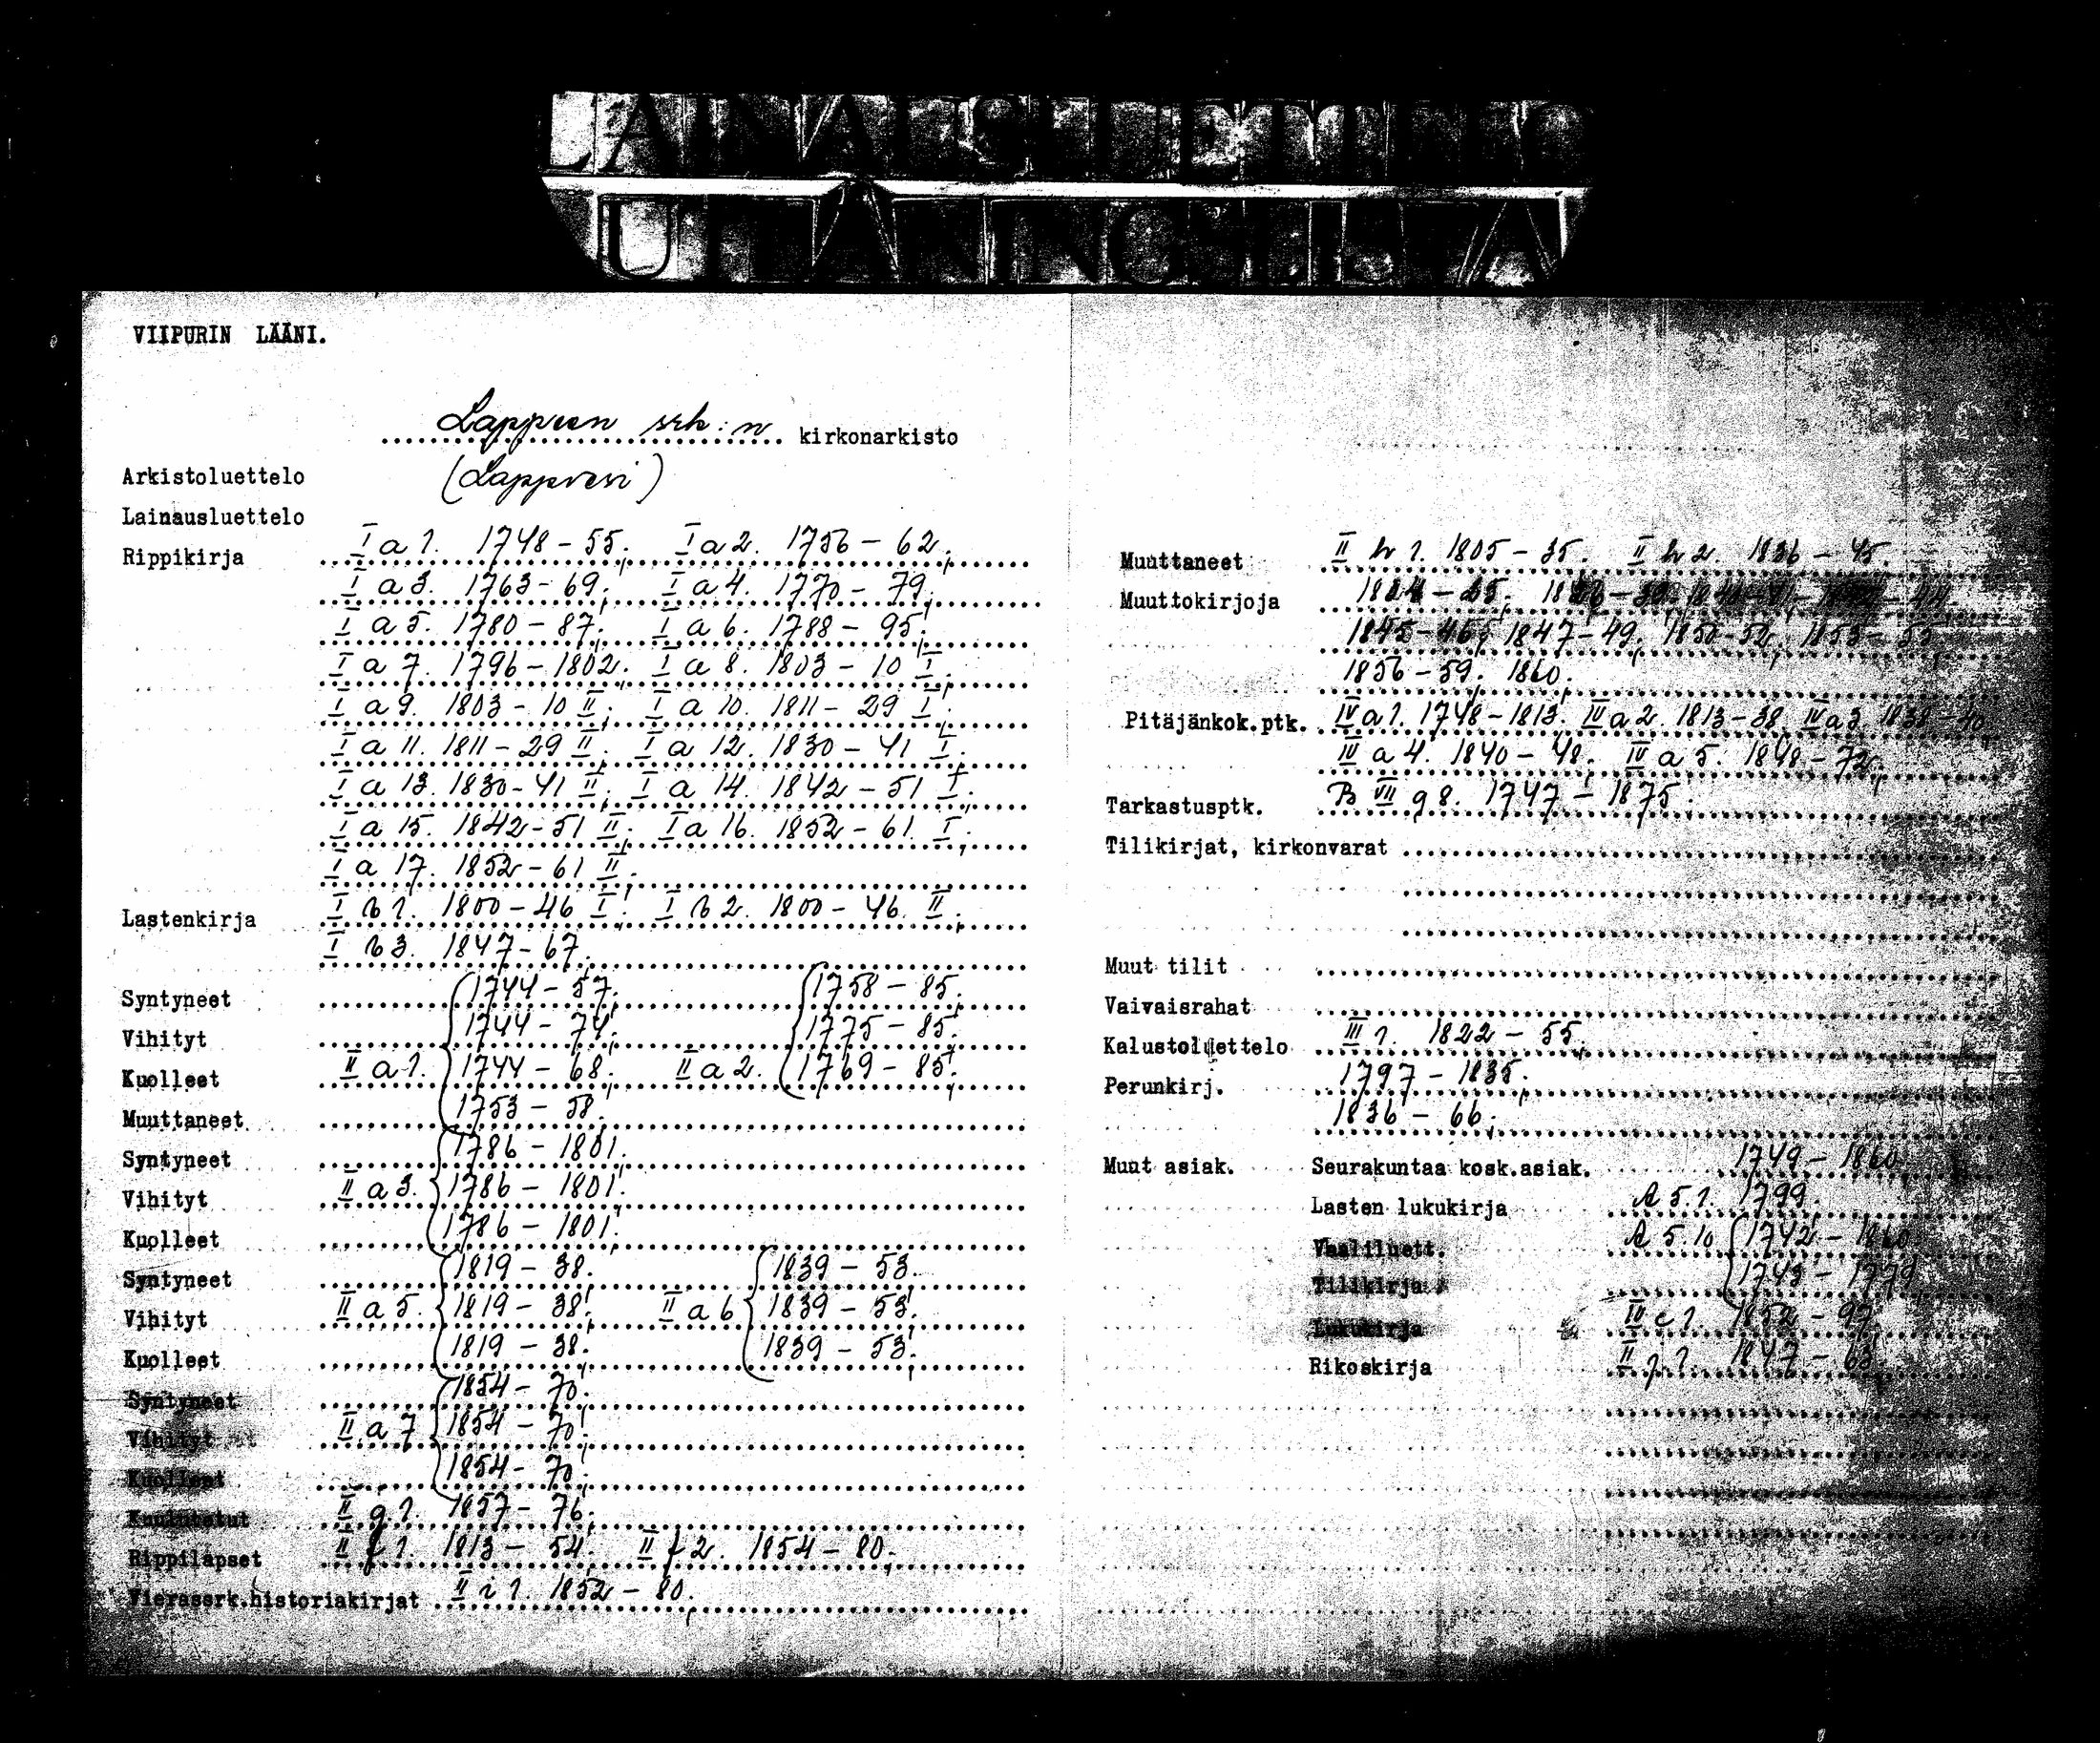 LAINAUSLUETTELO
UTLÅNINGSLISTA
VIIPURIN LÄÄNI.
Lappeen srk:n kirkonarkisto
Arkistoluettelo (Lappvesi)
Lainausluettelo
Rippikirja I a 1. 1748-55; I a 2. 1756-62;
I a 3. 1763-69; I a 4. 1770-79;
I a 5. 1780-87; I a 6. 1788-95;
I a 7. 1796-1802; I a 8. 1803-10 I;
I a 9. 1803-10 II; I a 10. 1811-29 I;
I a 11. 1811-29 II; I a 12. 1830-41 I;
I a 13. 1830-41 II; I a 14. 1842-51 I;
I a 15. 1842-51 II; I a 16. 1852-61. I;
I a 17. 1852-61 II;
Lastenkirja I b 1. 1800-46 I; I b 2. 1800-46. II;
I b 3. 1847-67;
Syntyneet 1744-57; 1758-85;
Vihityt 1744-74; 1775-85;
Kuolleet II a 1. 1744-68; II a 2. 1769-85;
Muuttaneet 1753-58;
Syntyneet 1786-1801;
Vihityt II a 3. 1786-1801;
Kuolleet 1786-1801;
Syntyneet 1819-38; 1839-53;
Vihityt II a 5. 1819-38; II a 6 1839-53;
Kuolleet 1819-38; 1839-53;
Syntyneet 1854-70;
Vihityt II a 7 1854-70;
Kuolleet 1854-70;
Kuulutetut II g 1. 1857-76;
Rippilapset II f 1. 1813-54; II f 2. 1854-80;
Vierassrk.historiakirjat II i 1. 1852-80;
Muuttaneet II b 1. 1805-35. II b 2. 1836-45.
Muuttokirjoja
1847-49; 1850-52; 1853-55;
1856-59; 1860.
Pitäjänkok.ptk. IV a 1. 1748-1813. IV a 2. 1813-38 IV a 3. 1838-40
IV a 4. 1840-48; IV a 5. 1848-72;
Tarkastusptk. B VII g 8. 1747-1875;
Tilikirjat, kirkonvarat
Muut tilit
Vaivaisrahat
Kalustoluettelo III 1. 1822-55;
Perunkirj. 1797-1835;
1836-66;
Muut asiak. Seurakuntaa kosk.asiak. 1749-1860
Lasten lukukirja A 5.1. 1799.
Vaaliluett. A 5.10 1742-1860
Tilikirja 1743-1779
Lukukirja III c 1. 1852-97
Rikoskirja II j 1. 1847-63